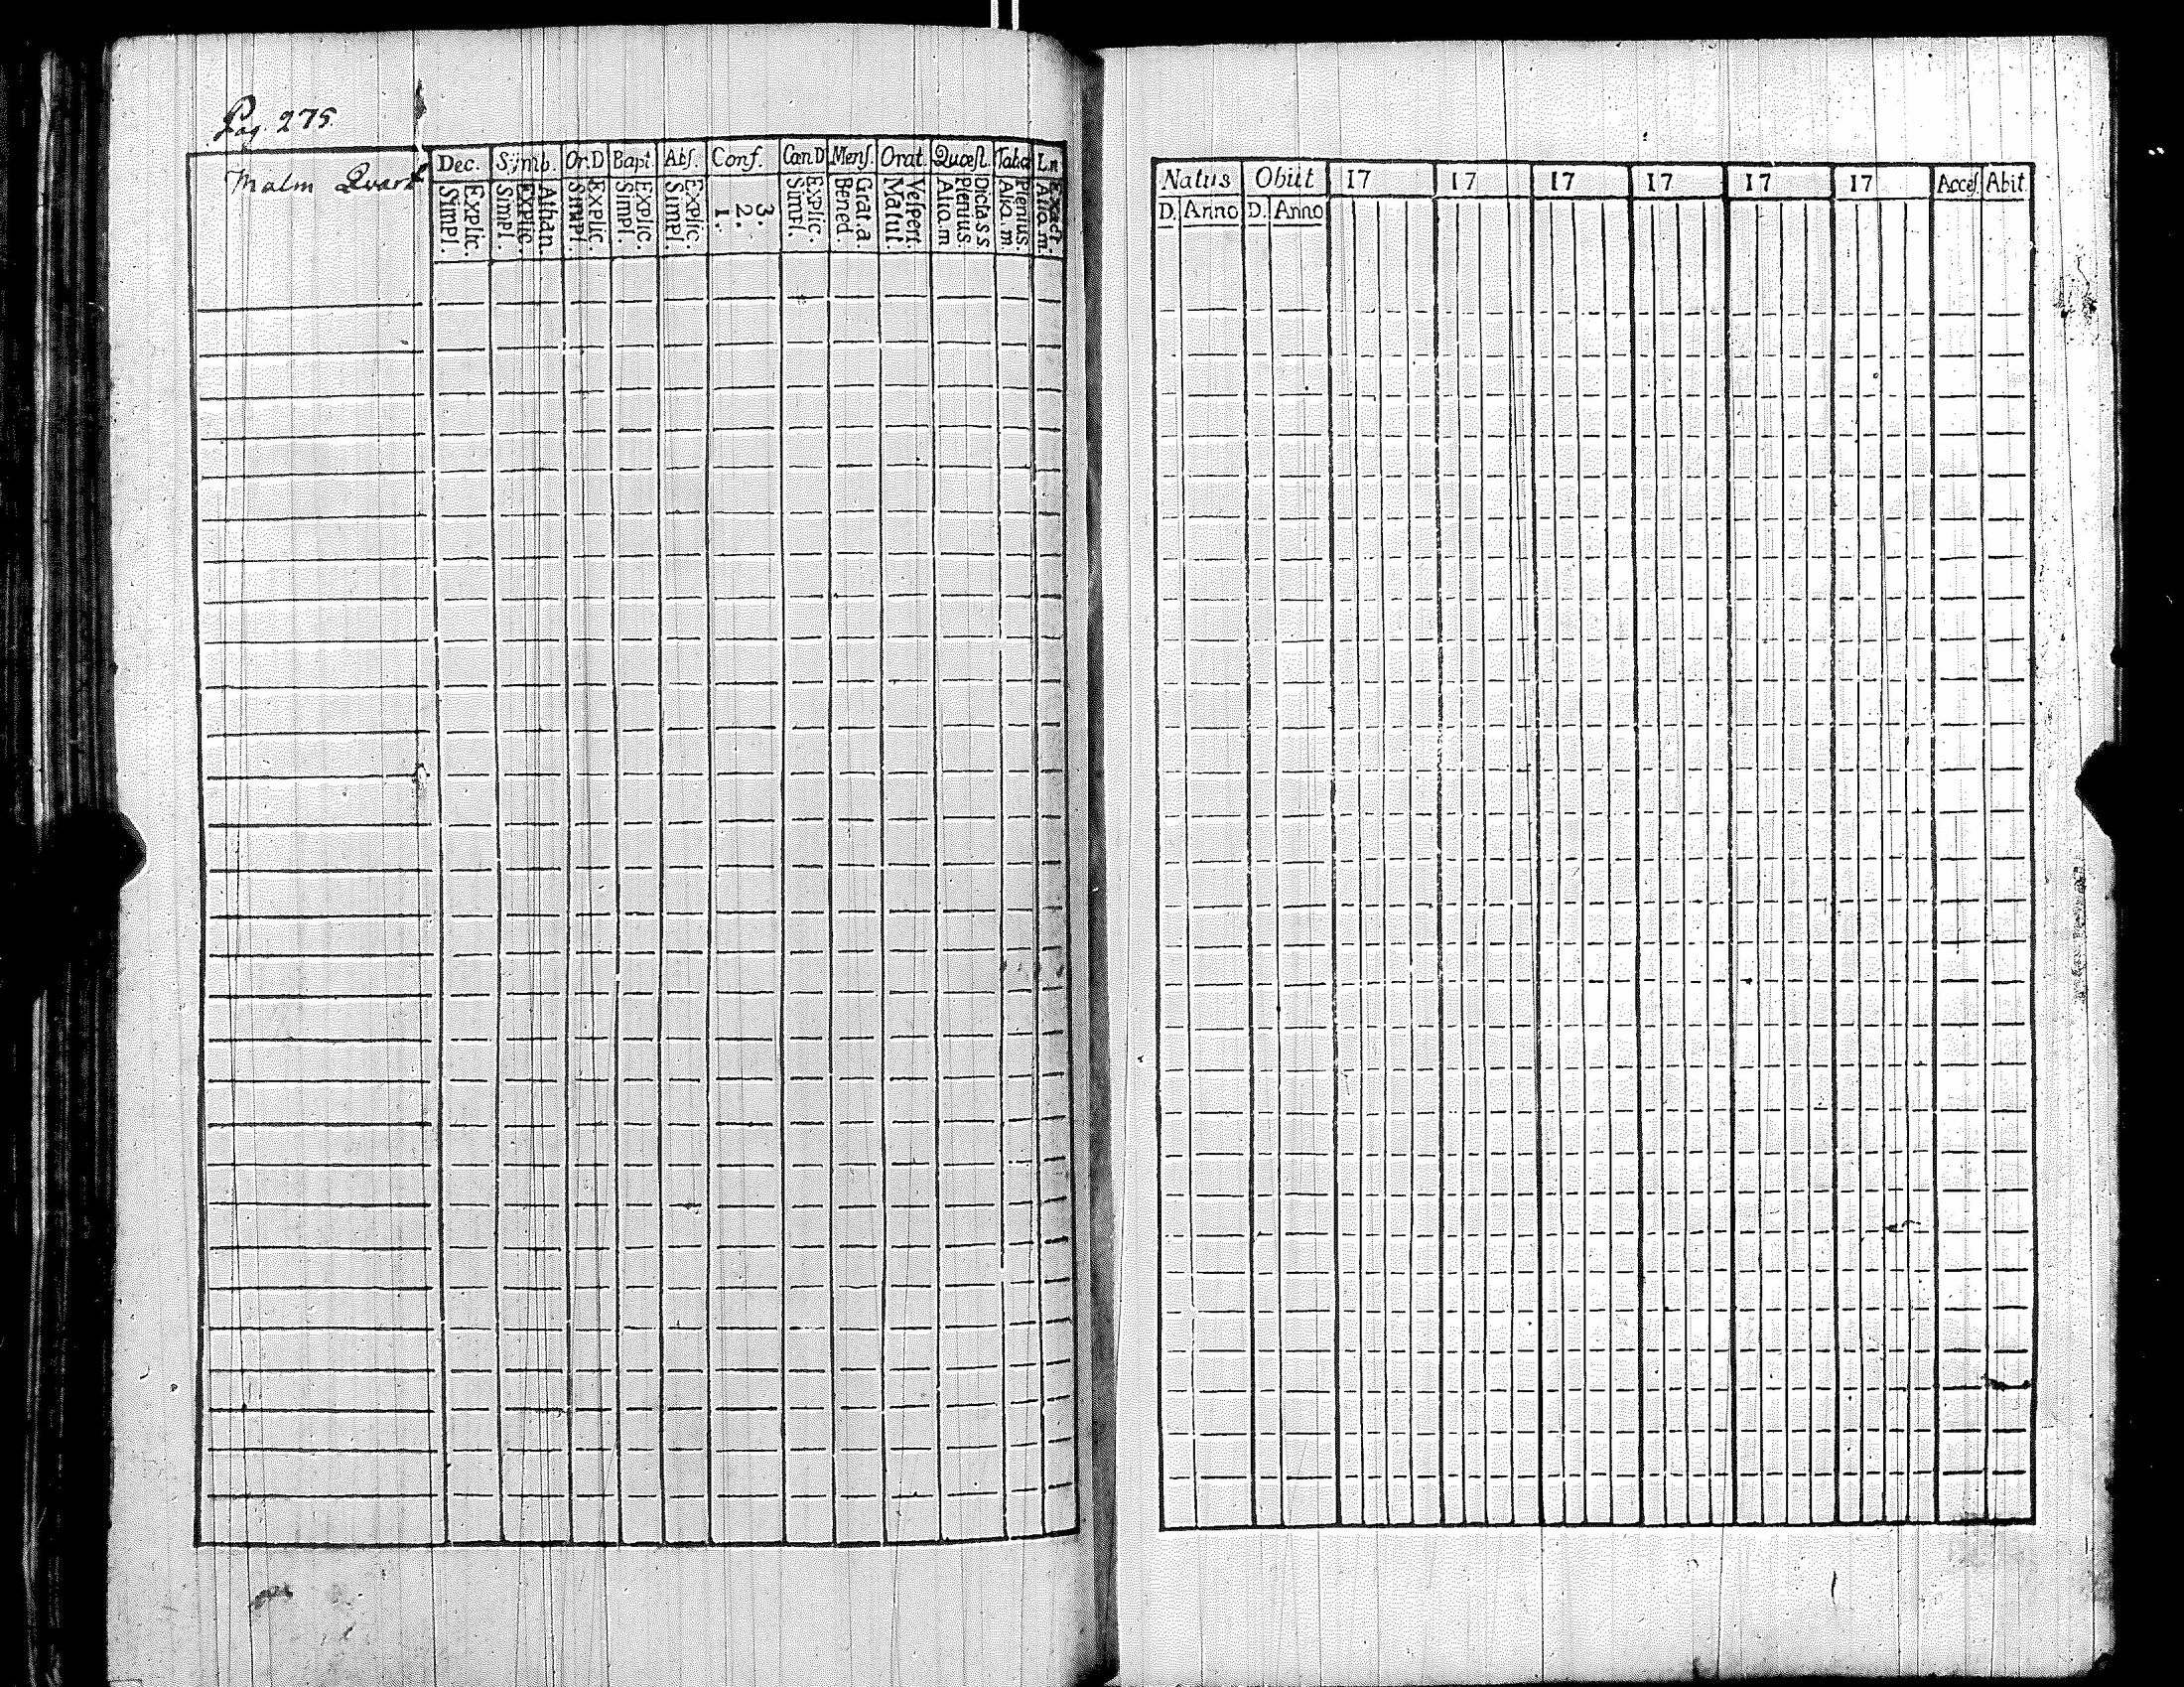 Pag. 275
Malm Qvart
Dec. Symb. Or.D Bapt Abſ. Conf. Can D Menſ. Orat. Quæſt. Taba Ln
Explic. Simpl. Athan. Explic. Simpl. Explic. Simpl. Explic. Simpl. Explic. Simpl. 3. 2. 1. Explic. Simpl. Grat.a. Bened. Veſpert. Matut. Dicta s s Plenius. Alio.m Plenius. Alia.m Exact. Alia.m.
Natus Obiit 17 17 17 17 17 17 Acceſ Abit
D. Anno D. Anno